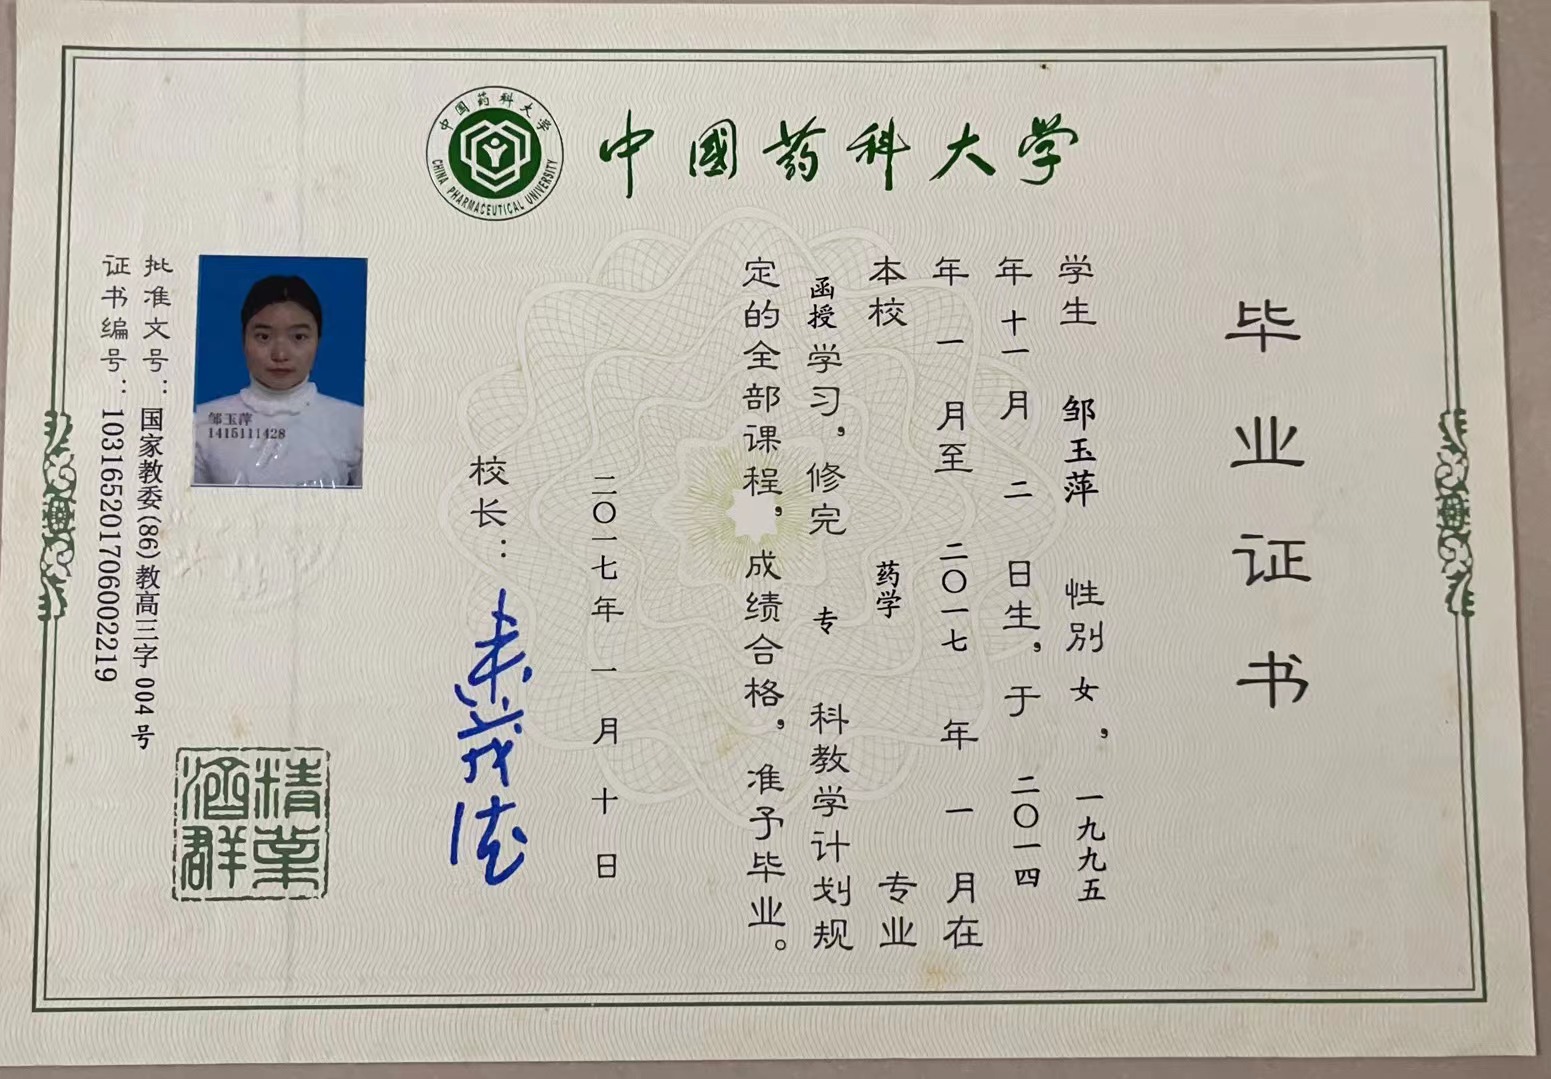 中国药科大学
CHINA PHARMACEUTICAL UNIVERSITY
中國药科大学
毕业证书
学生 邹玉萍 性别 女，一九九五
年十一月 二 日生，于 二〇一四
年 一 月至 二〇一七 年 一 月在
本校 药学 专业
函授学习，修完 专 科教学计划规
定的全部课程，成绩合格，准予毕业。
二〇一七年 一 月 十 日
校长：来茂德
邹玉萍
1415111428
批准文号：国家教委(86)教高三字 004 号
证书编号：103165201706002219
精業
濟群